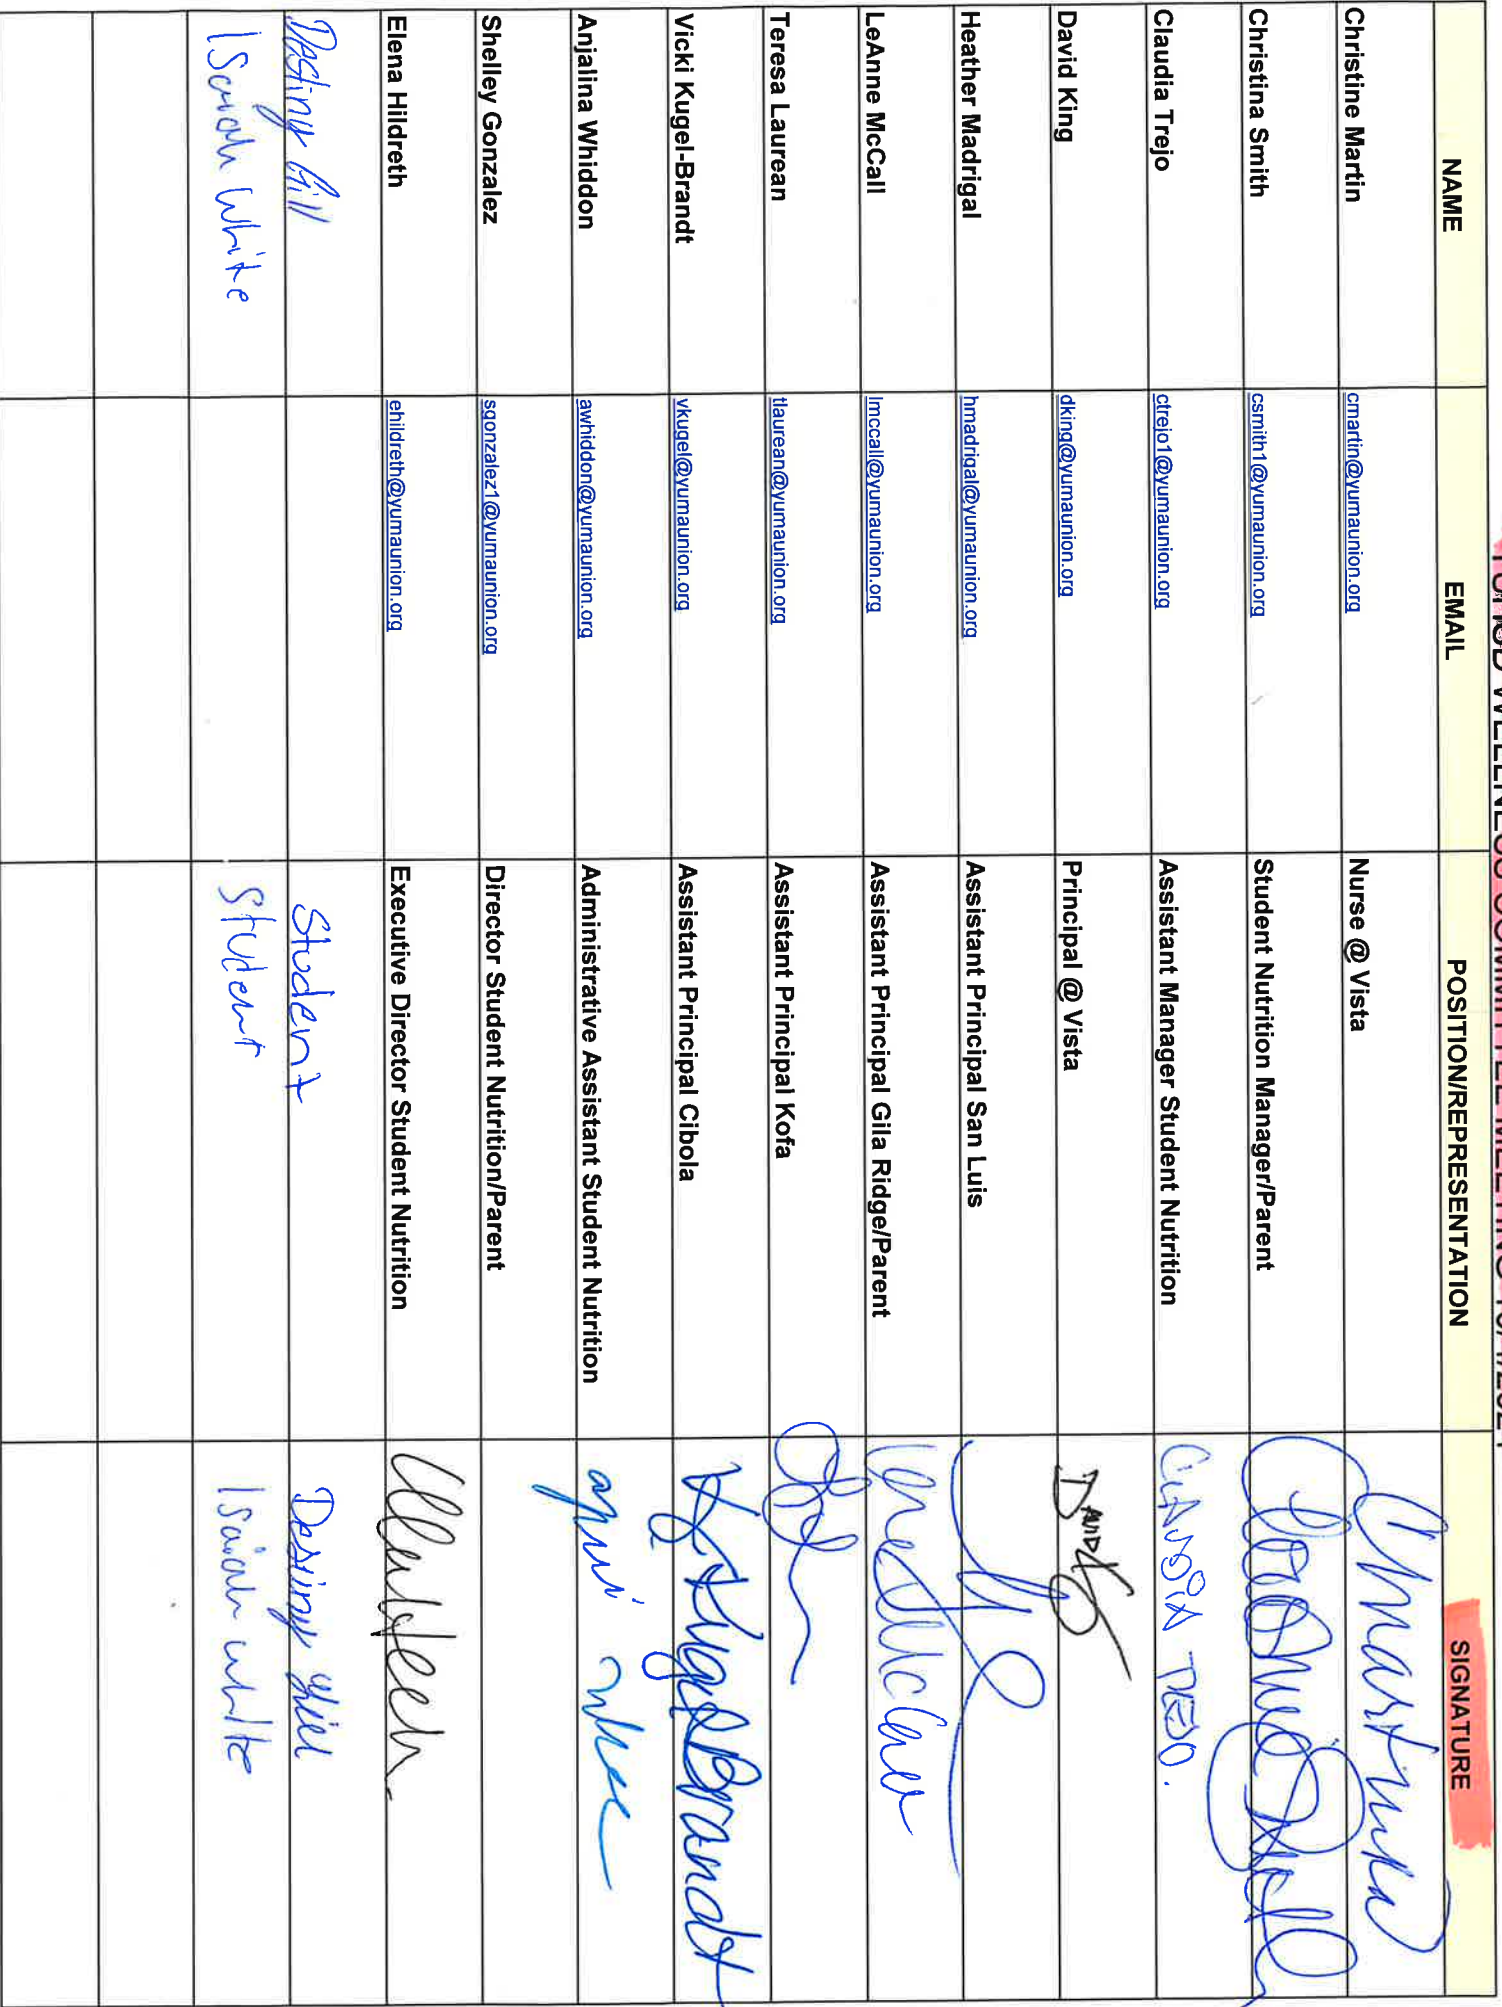 WELLNESS COMMITTEE MEETING
NAME EMAIL POSITION/REPRESENTATION SIGNATURE
Christine Martin cmartin@yumaunion.org Nurse @ Vista
Christina Smith csmith1@yumaunion.org Student Nutrition Manager/Parent
Claudia Trejo ctrejo1@yumaunion.org Assistant Manager Student Nutrition
David King dking@yumaunion.org Principal @ Vista David K
Heather Madrigal hmadrigal@yumaunion.org Assistant Principal San Luis
LeAnne McCall lmccall@yumaunion.org Assistant Principal Gila Ridge/Parent
Teresa Laurean tlaurean@yumaunion.org Assistant Principal Kofa
Vicki Kugel-Brandt vkugel@yumaunion.org Assistant Principal Cibola V Kugel Brandt
Anjalina Whiddon awhiddon@yumaunion.org Administrative Assistant Student Nutrition
Shelley Gonzalez sgonzalez1@yumaunion.org Director Student Nutrition/Parent
Elena Hildreth ehildreth@yumaunion.org Executive Director Student Nutrition
Destiny Gill Student Destiny Gill
Isaiah White Student Isaiah White